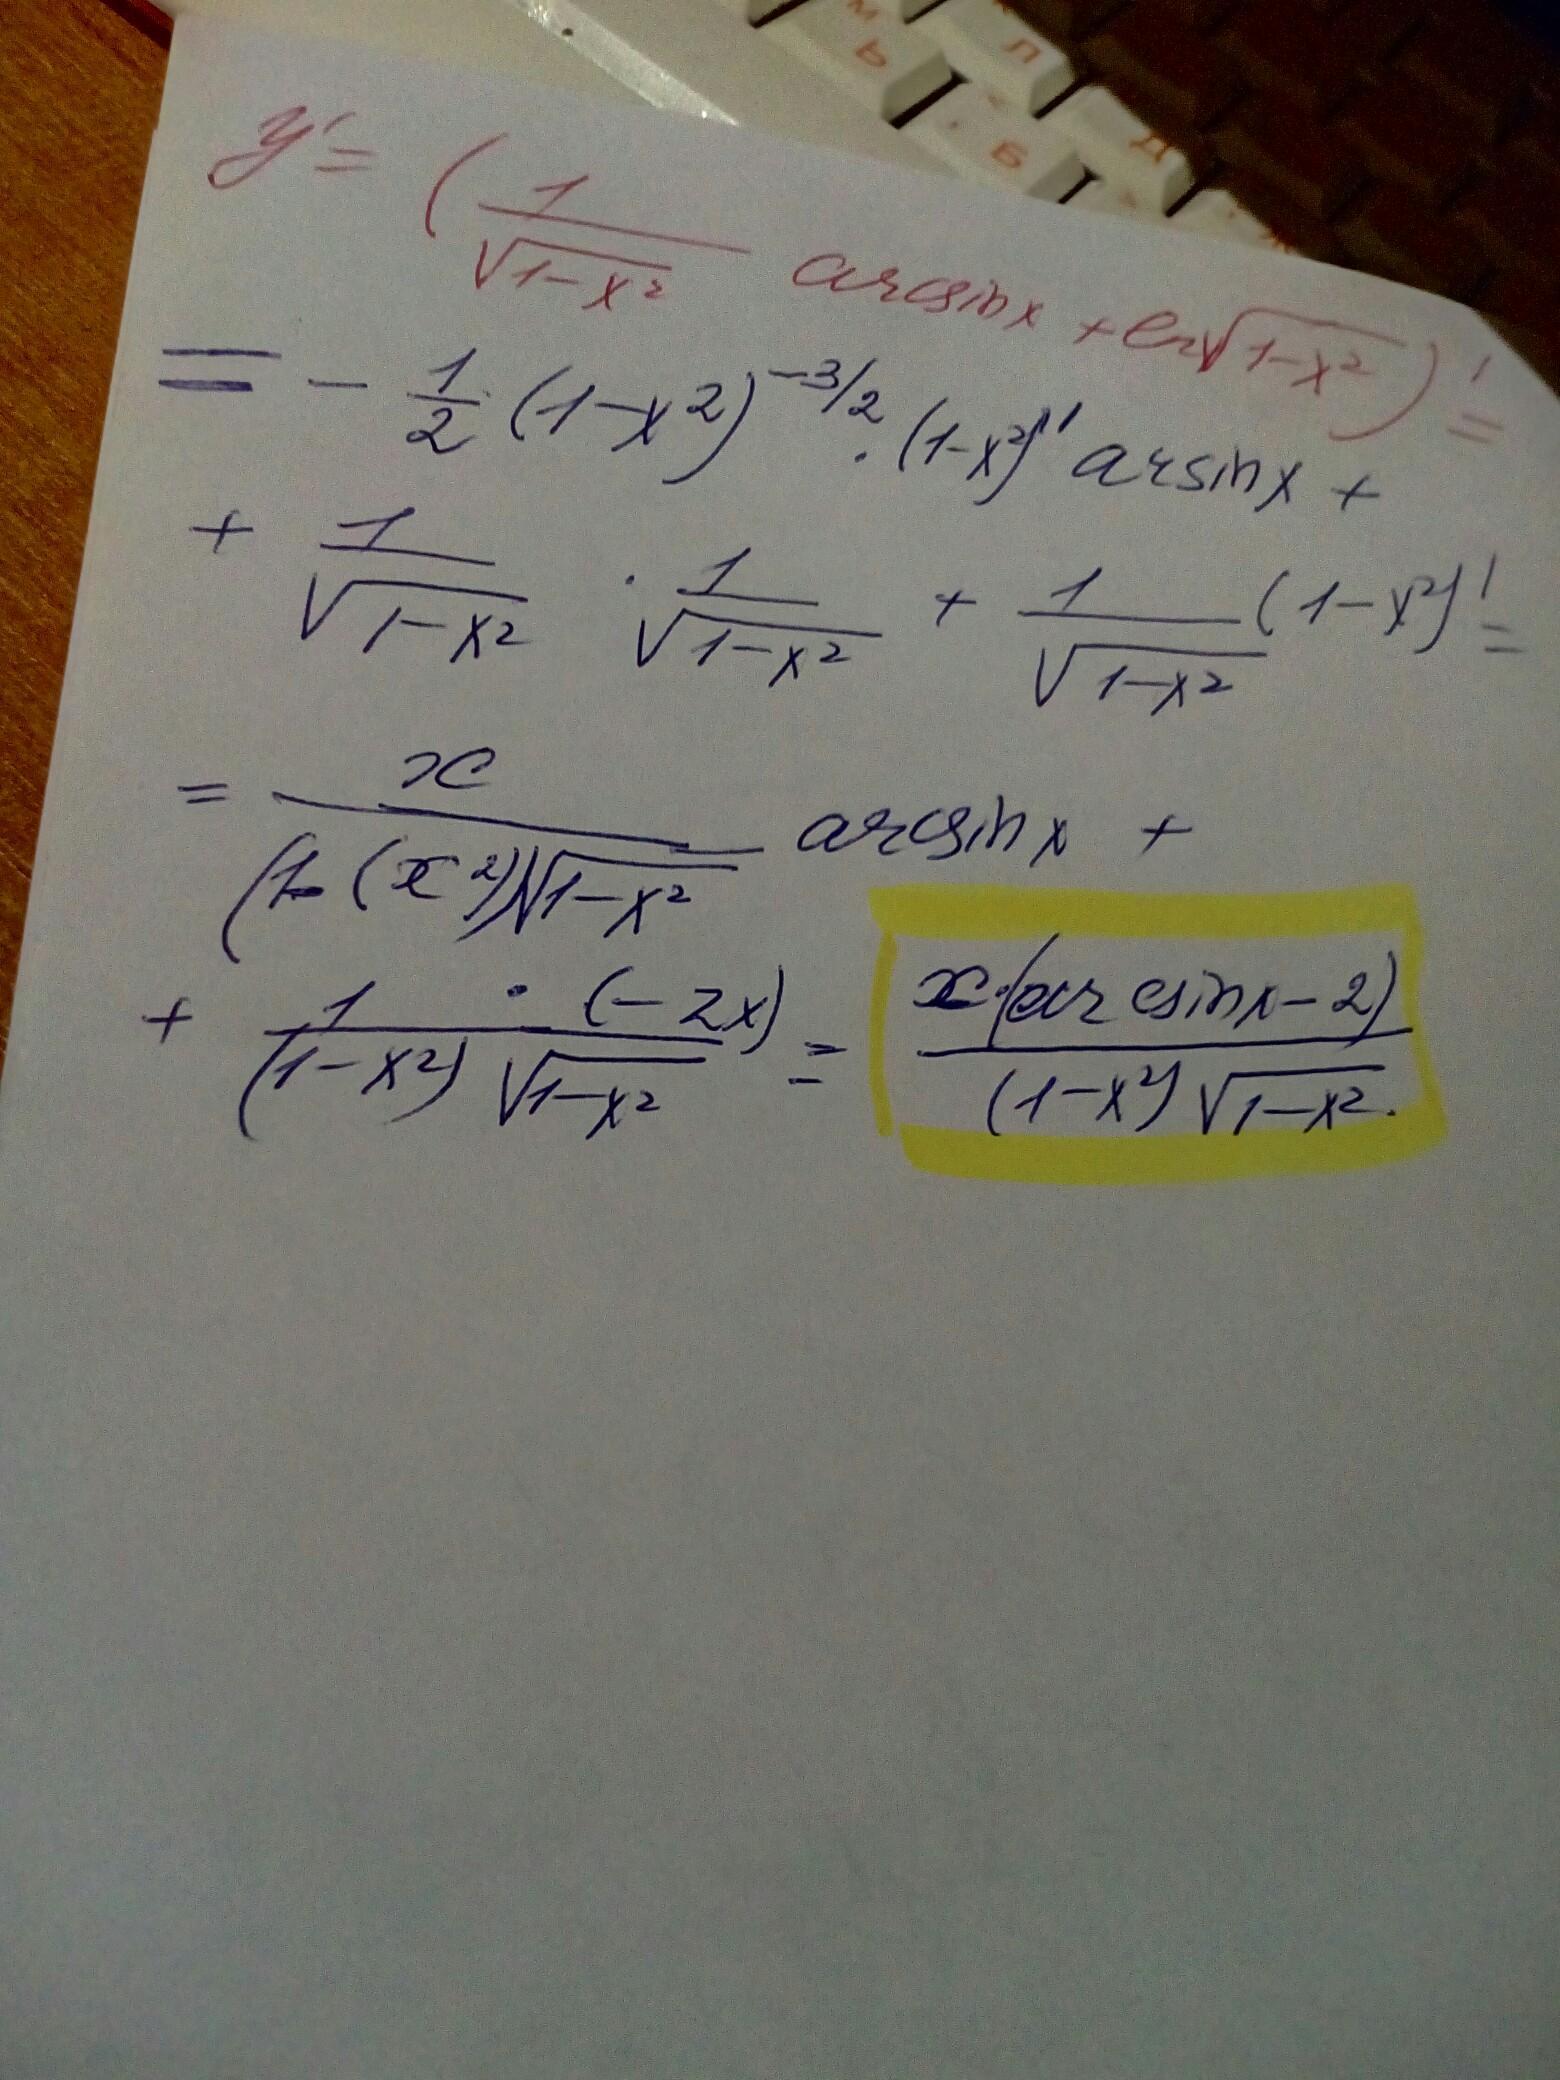 М Л
Ь Б Д
y' = (1/√(1-x²) arcsin x + ln √(1-x²))' =
= - 1/2 (1-x²)^(-3/2) · (1-x²)' arsin x +
+ 1/√(1-x²) · 1/√(1-x²) + 1/√(1-x²) (1-x²)' =
= x/((1-(x²)√(1-x²)) arcsin x +
+ 1·(-2x)/((1-x²)√(1-x²)) = x·(arcsin x - 2)/((1-x²)√(1-x²)).